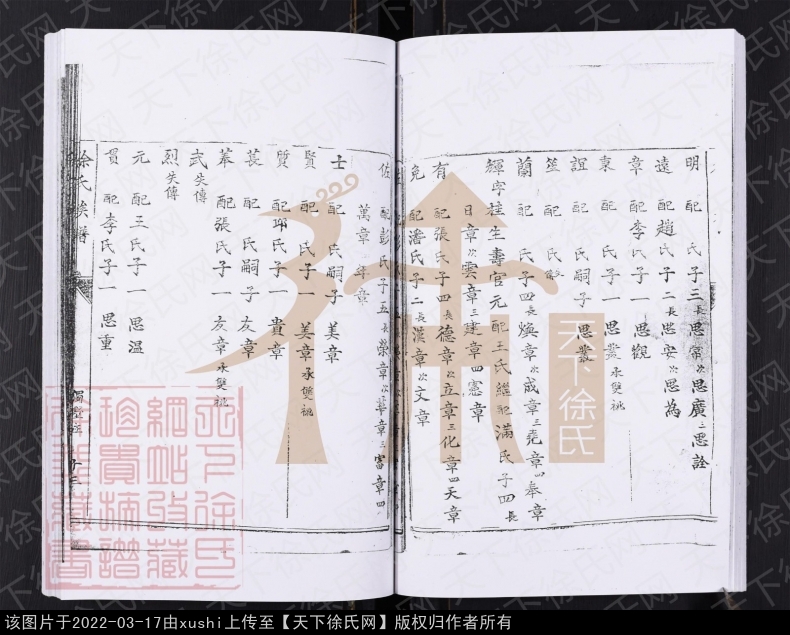 明 配 氏子三 長思帝 次思廣 三思詮
遠 配趙氏子二 長思安 次思為
章 配李氏子一 思觀
東 配 氏子一 思叢 承雙祧
誼 配 氏嗣子 思叢
笠 配 氏
蘭 配 氏子四 長煥章 次成章 三堯章 四奉章
輝 字桂生壽官元配王氏繼配滿氏子四 長
日章 次雲章 三建章 四憲章
有 配張氏子四 長德章 次立章 三化章 四天章
免 配潘氏子二 長漢章 次文章
佐 配彭氏子五 長榮章 次華章 三富章 四
萬章 年章
士 配 氏嗣子 美章
賢 配 氏子一 美章 承雙祧
質 配邱氏子一 貴章
長 配 氏嗣子 友章
羣 配張氏子一 友章 承雙祧
武 失傳
烈 失傳
元 配王氏子一 思溫
貫 配李氏子一 思重
徐氏族譜
十三
天下徐氏
天下徐氏网
该图片于2022-03-17由xushi上传至【天下徐氏网】版权归作者所有